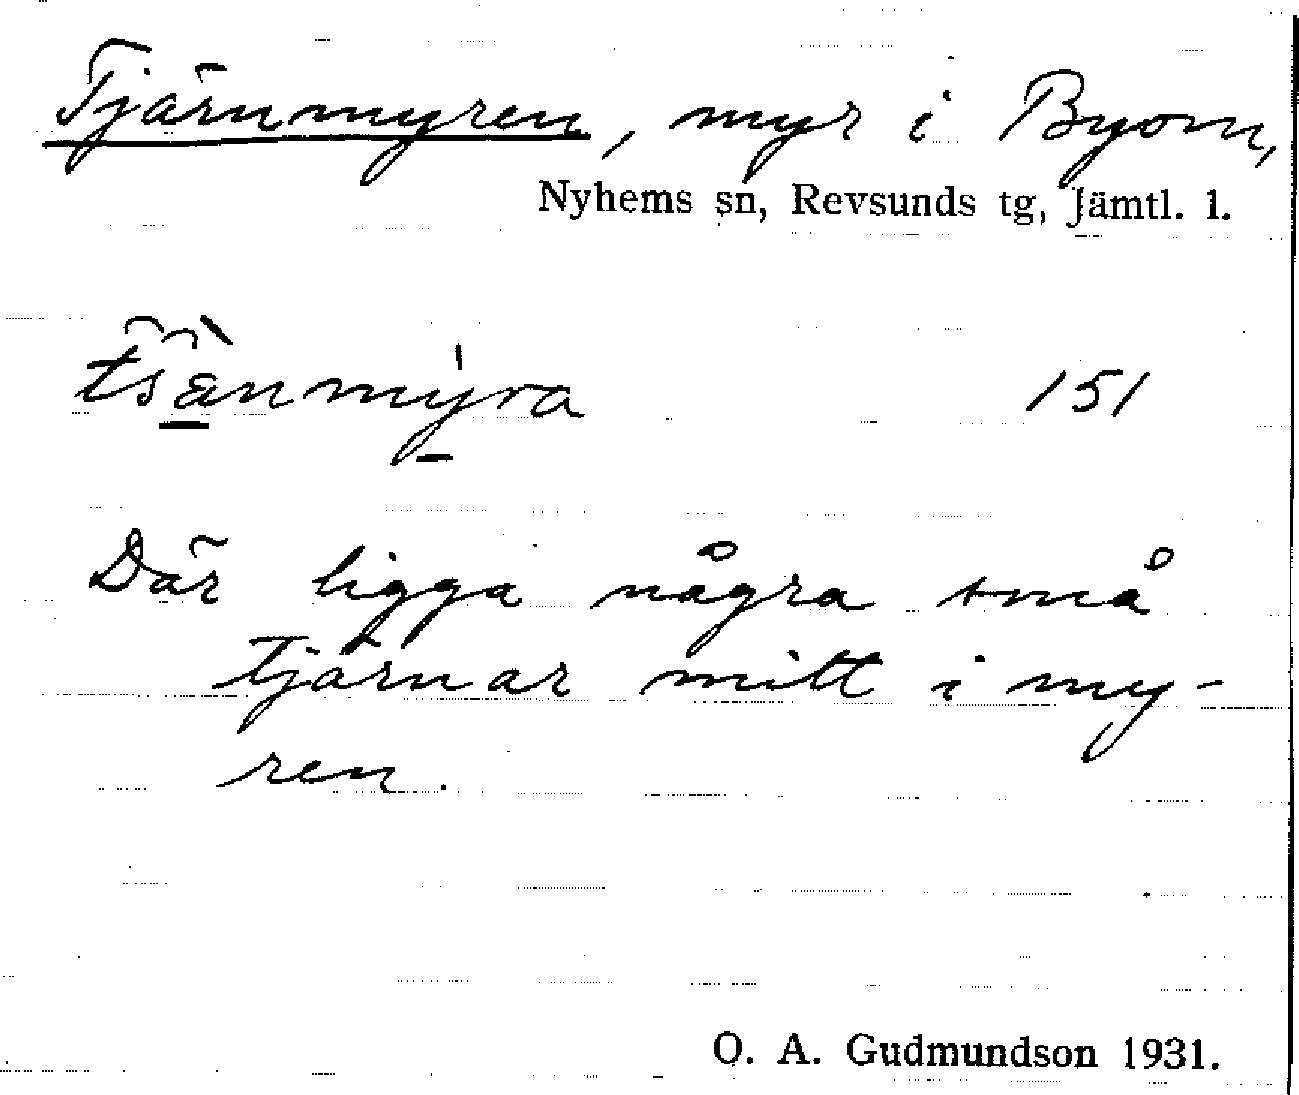 Tjärnmyren, myr i Byom,
Nyhems sn, Revsunds tg, Jämtl. l.
tsä̀nmy̍ra 151
Där ligga några små
tjärnar mitt i my-
ren.
O. A. Gudmundson 1931.